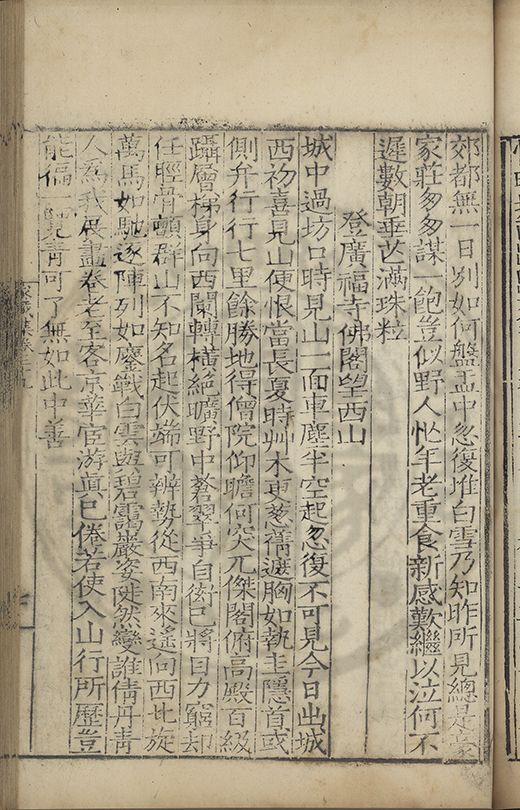 郊都無一日別如何盤盂中忽復堆白雪乃知昨所見總是豪
家莊匆匆謀一飽豈似野人忙年老重食新感歎繼以泣何不
遲數朝垂芒滿珠粒
登廣福寺佛閣望西山
城中過坊口時見山一面車塵半空起忽復不可見今日出城
西初喜見山便恨當長夏時艸木更葱蒨遮胸如執圭隱首或
側弁行行七里餘勝地得僧院仰瞻何突兀傑閣俯高殿百級
躡層梯身向西闌轉橫絶曠野中蒼翠爭自衒已將目力窮却
任脛骨顫群山不知名起伏端可辨勢從西南來遥向西北旋
萬馬如馳逐陣列如鏖戰白雲與碧靄巖姿陡然變誰倩丹青
人爲我展畫卷老至客京華宦游眞已倦若使入山行所歷豈
能徧一覽青可了無如此中善